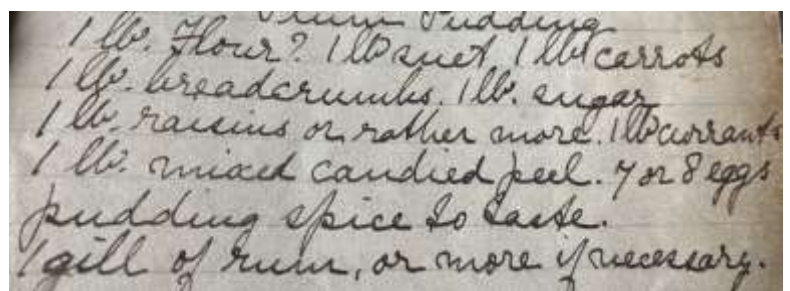 Plum Pudding
1 lb. Flour? 1 lb suet 1 lb carrots
1 lb. breadcrumbs. 1 lb. sugar
1 lb. raisins or rather more. 1 lb currants
1 lb. mixed candied peel. 7 or 8 eggs
pudding spice to taste.
1 gill of rum, or more if necessary.